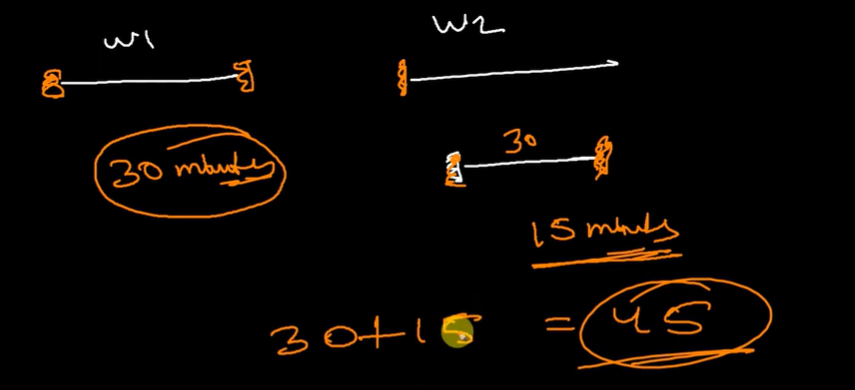 W1
W2
30
30 minutes
15 minutes
30+15 = 45